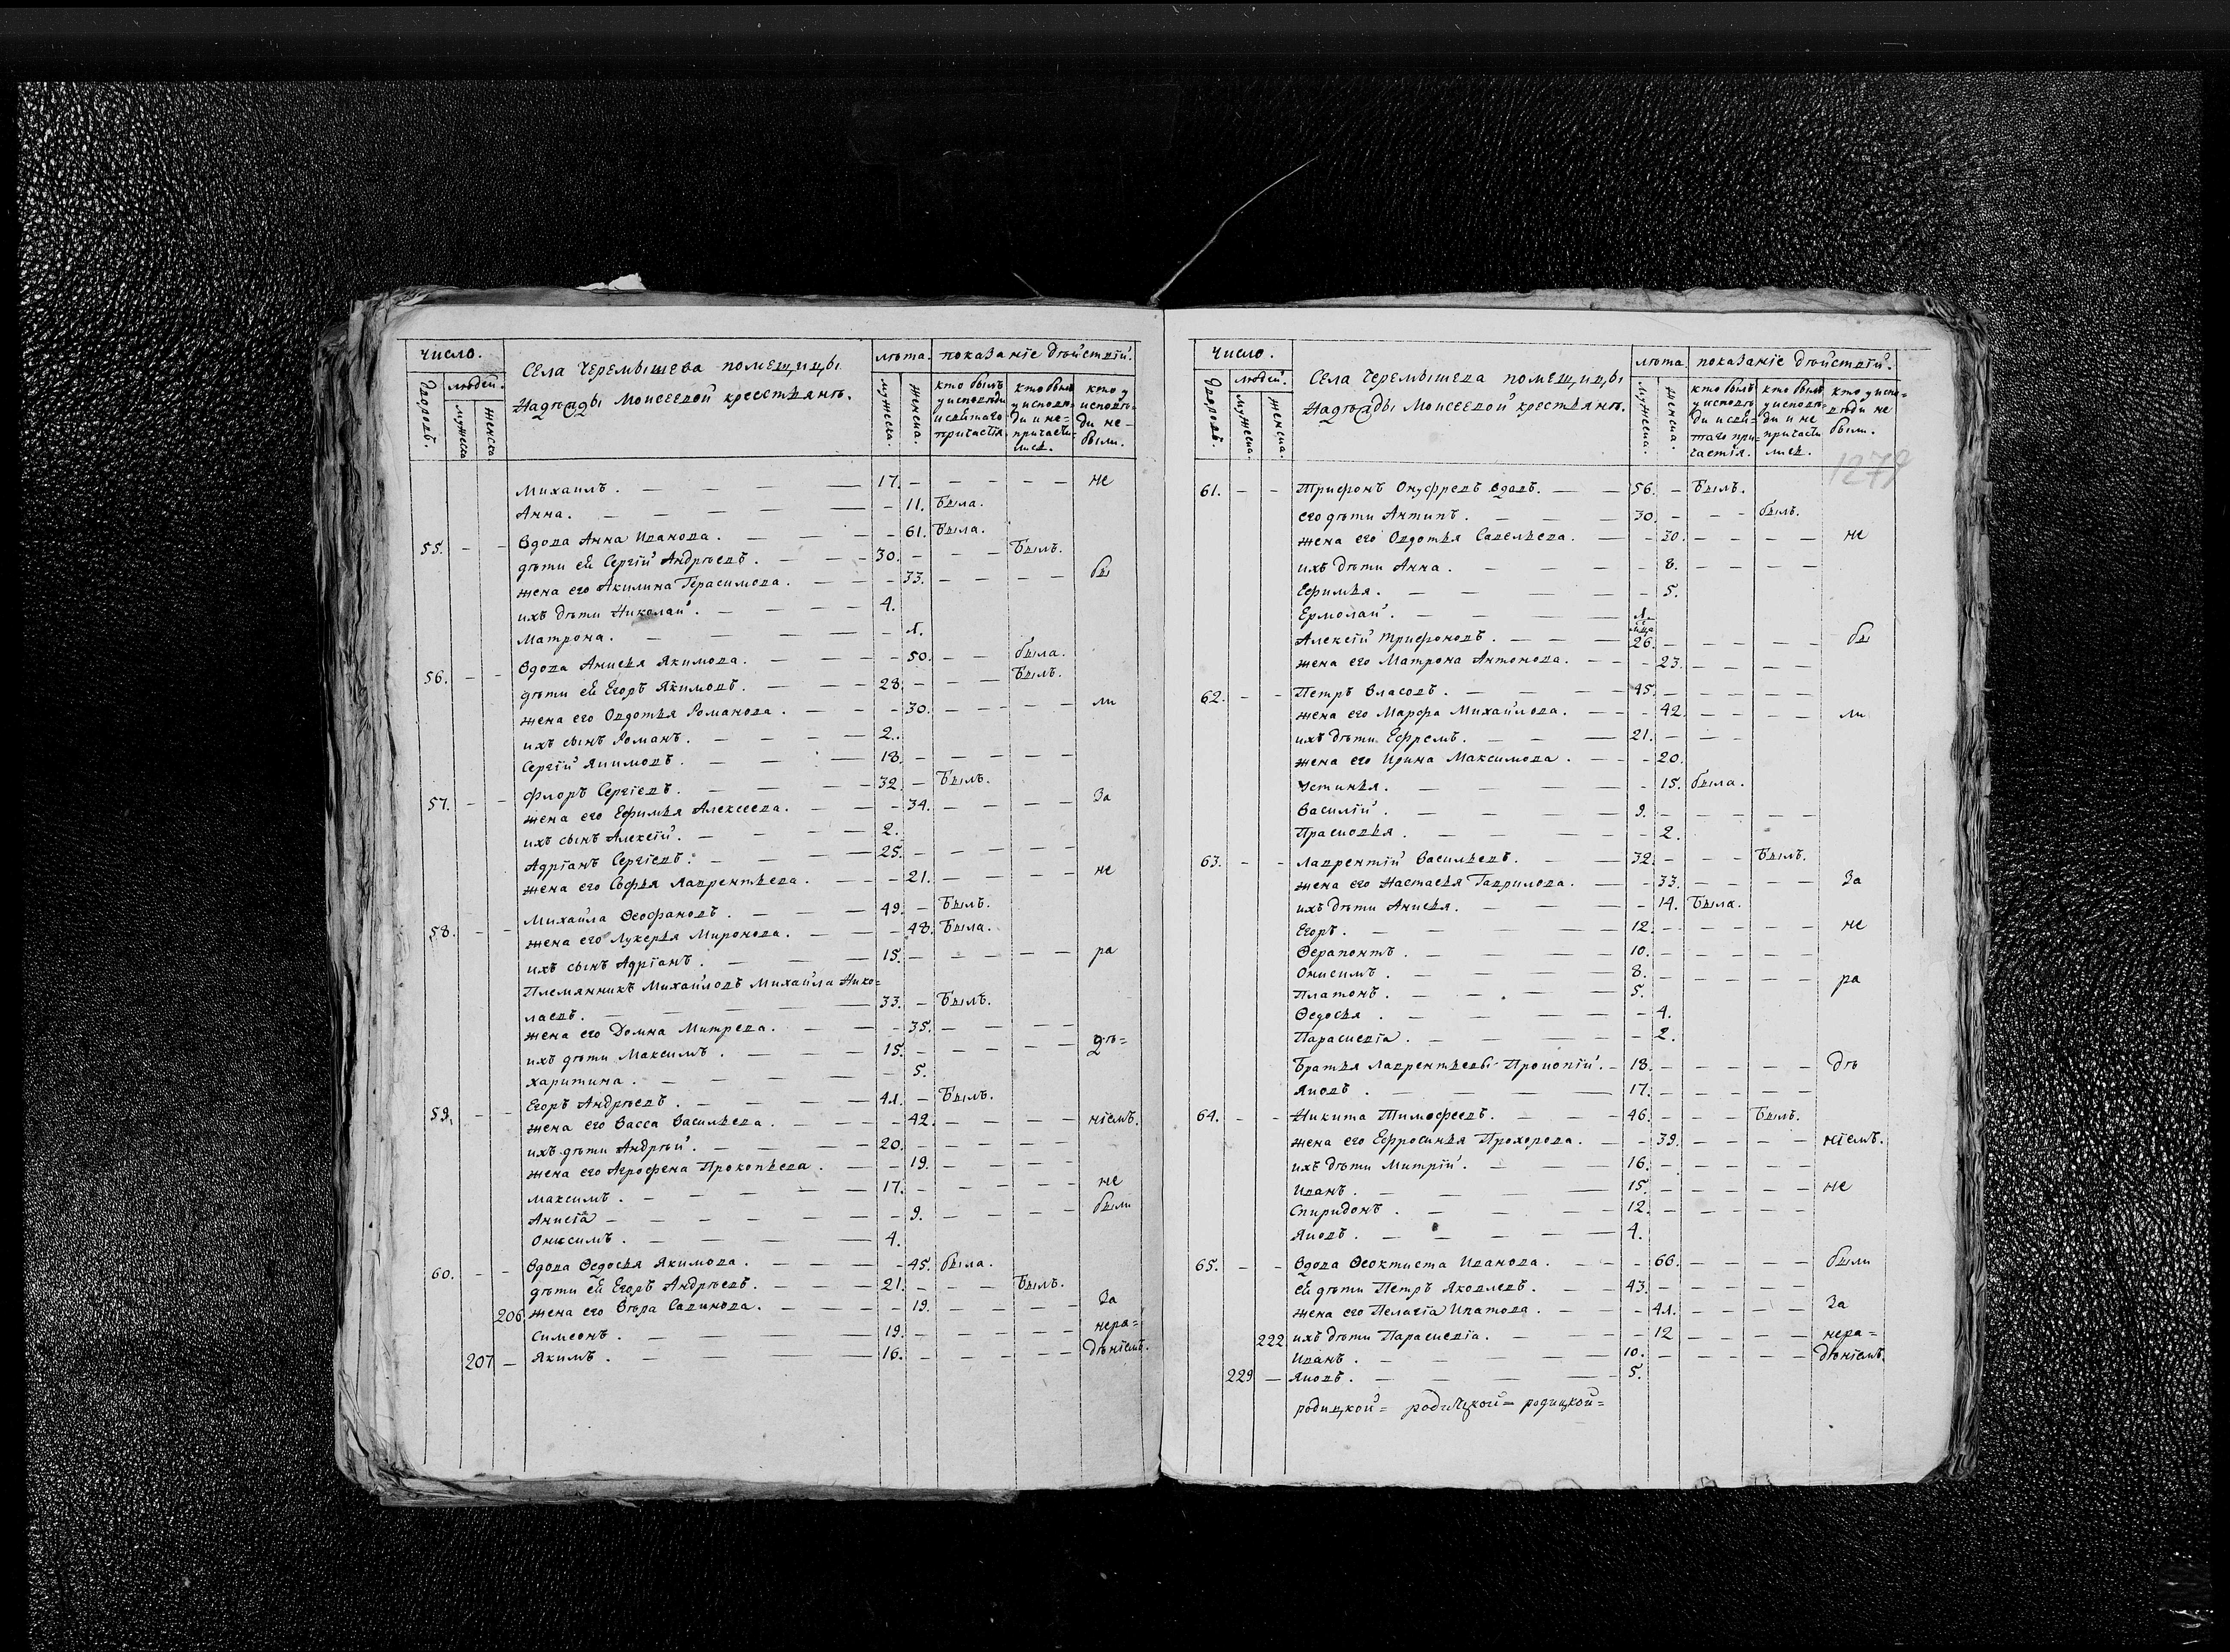 число.
людей.
Дворовъ.
мужеска
женска
Села Черемышева помещицы
Надежды Моисеевой крестьянъ.
лѣта.
мужеска.
женска.
показаніе дѣйствій.
кто былъ у исповѣди и святаго причастія
кто былъ у исповѣди и не причастились.
кто у исповѣди не были.
Михаилъ. 17. не
Анна. 11. Была.
55. Вдова Анна Иванова. 61. Была.
дѣти ей Сергій Андрѣевъ. 30. Былъ.
жена его Акилина Герасимова. 33. бы
ихъ дѣти Николай. 4.
Матрона. 1.
56. Вдова Анисья Якимова. 50. была.
дѣти ей Егоръ Якимовъ. 28. Былъ.
жена его Овдотья Романова. 30. ли
ихъ сынъ Романъ. 2.
Сергій Якимовъ. 18.
57. Флоръ Сергіевъ. 32. Былъ.
жена его Ефимья Алексеева. 34. За
ихъ сынъ Алексій. 2.
Адріанъ Сергіевъ. 25.
жена его Софья Лаврентьева. 21. не
58. Михайла Ѳеофановъ. 49. Былъ.
жена его Лукерья Миронова. 48. Была.
ихъ сынъ Адріанъ. 15. ра
Племянникъ Михайловъ Михайла Нико=
лаевъ. 33. Былъ.
жена его Домна Митрева. 35.
ихъ дѣти Максимъ. 15. дѣ=
харитина. 5.
59. Егоръ Андрѣевъ. 41. Былъ.
жена его Васса Васильева. 42. ніемъ.
ихъ дѣти Андрѣй. 20.
жена его Агрофена Прокопьева. 19.
Максимъ. 17. не
Анисія 9. были
Онисимъ. 4.
60. Вдова Ѳедосья Якимова. 45. была.
дѣти ей Егоръ Андрѣевъ. 21. Былъ.
206. жена его Вѣра Савинова. 19. За
Симеонъ. 19. нера=
207 Якимъ. 16. дѣніемъ.
число.
людей.
Дворовъ.
мужеска.
женска.
Села Черемышева помещицы
Надежды Моисеевой крестьянъ.
лѣта
мужеска.
женска.
показаніе дѣйствій.
кто былъ у исповѣди и святаго причастія.
кто былъ у исповѣди и не причастились.
кто у исповѣди не были.
1279
61. Трифонъ Онуфревъ вдовъ. 56. Былъ.
его дѣти Антипъ. 30. былъ.
жена его Овдотья Савельева. 30. не
ихъ дѣти Анна. 8.
Ефимья. 5.
Ермолай. 1.
Алексій Трифоновъ. 26. бы
жена его Матрона Антонова. 23.
62. Петръ Власовъ. 45.
жена его Марфа Михайлова. 42. ли
ихъ дѣти Ефремъ. 21.
жена его Ирина Максимова. 20.
Устинья. 15. была.
Василій. 9.
Прасковья. 2.
63. Лаврентій Васильевъ. 32. Былъ.
жена его Настасья Гаврилова. 33. За
ихъ дѣти Анисья. 14. Была.
Егоръ. 12. не
Ѳерапонтъ. 10.
Онисимъ. 8. ра
Платонъ. 5.
Ѳедосья. 4.
Парасковіа. 2.
Братья Лаврентьевы Прокопій. 18. дѣ
Яковъ. 17.
64. Никита Тимофеевъ. 46. Былъ.
жена его Ефросинья Прохорова. 39. ніемъ.
ихъ дѣти Митрій. 16.
Иванъ. 15. не
Спиридонъ. 12.
Яковъ. 4.
65. Вдова Ѳеоктиста Иванова. 66. были
ей дѣти Петръ Яковлевъ. 43.
жена его Пелагіа Ипатова. 41. За
222 ихъ дѣти Парасковіа. 12 нера=
Иванъ. 10. дѣніемъ.
229 Яковъ. 5.
родицкой= родицкой= родицкой=